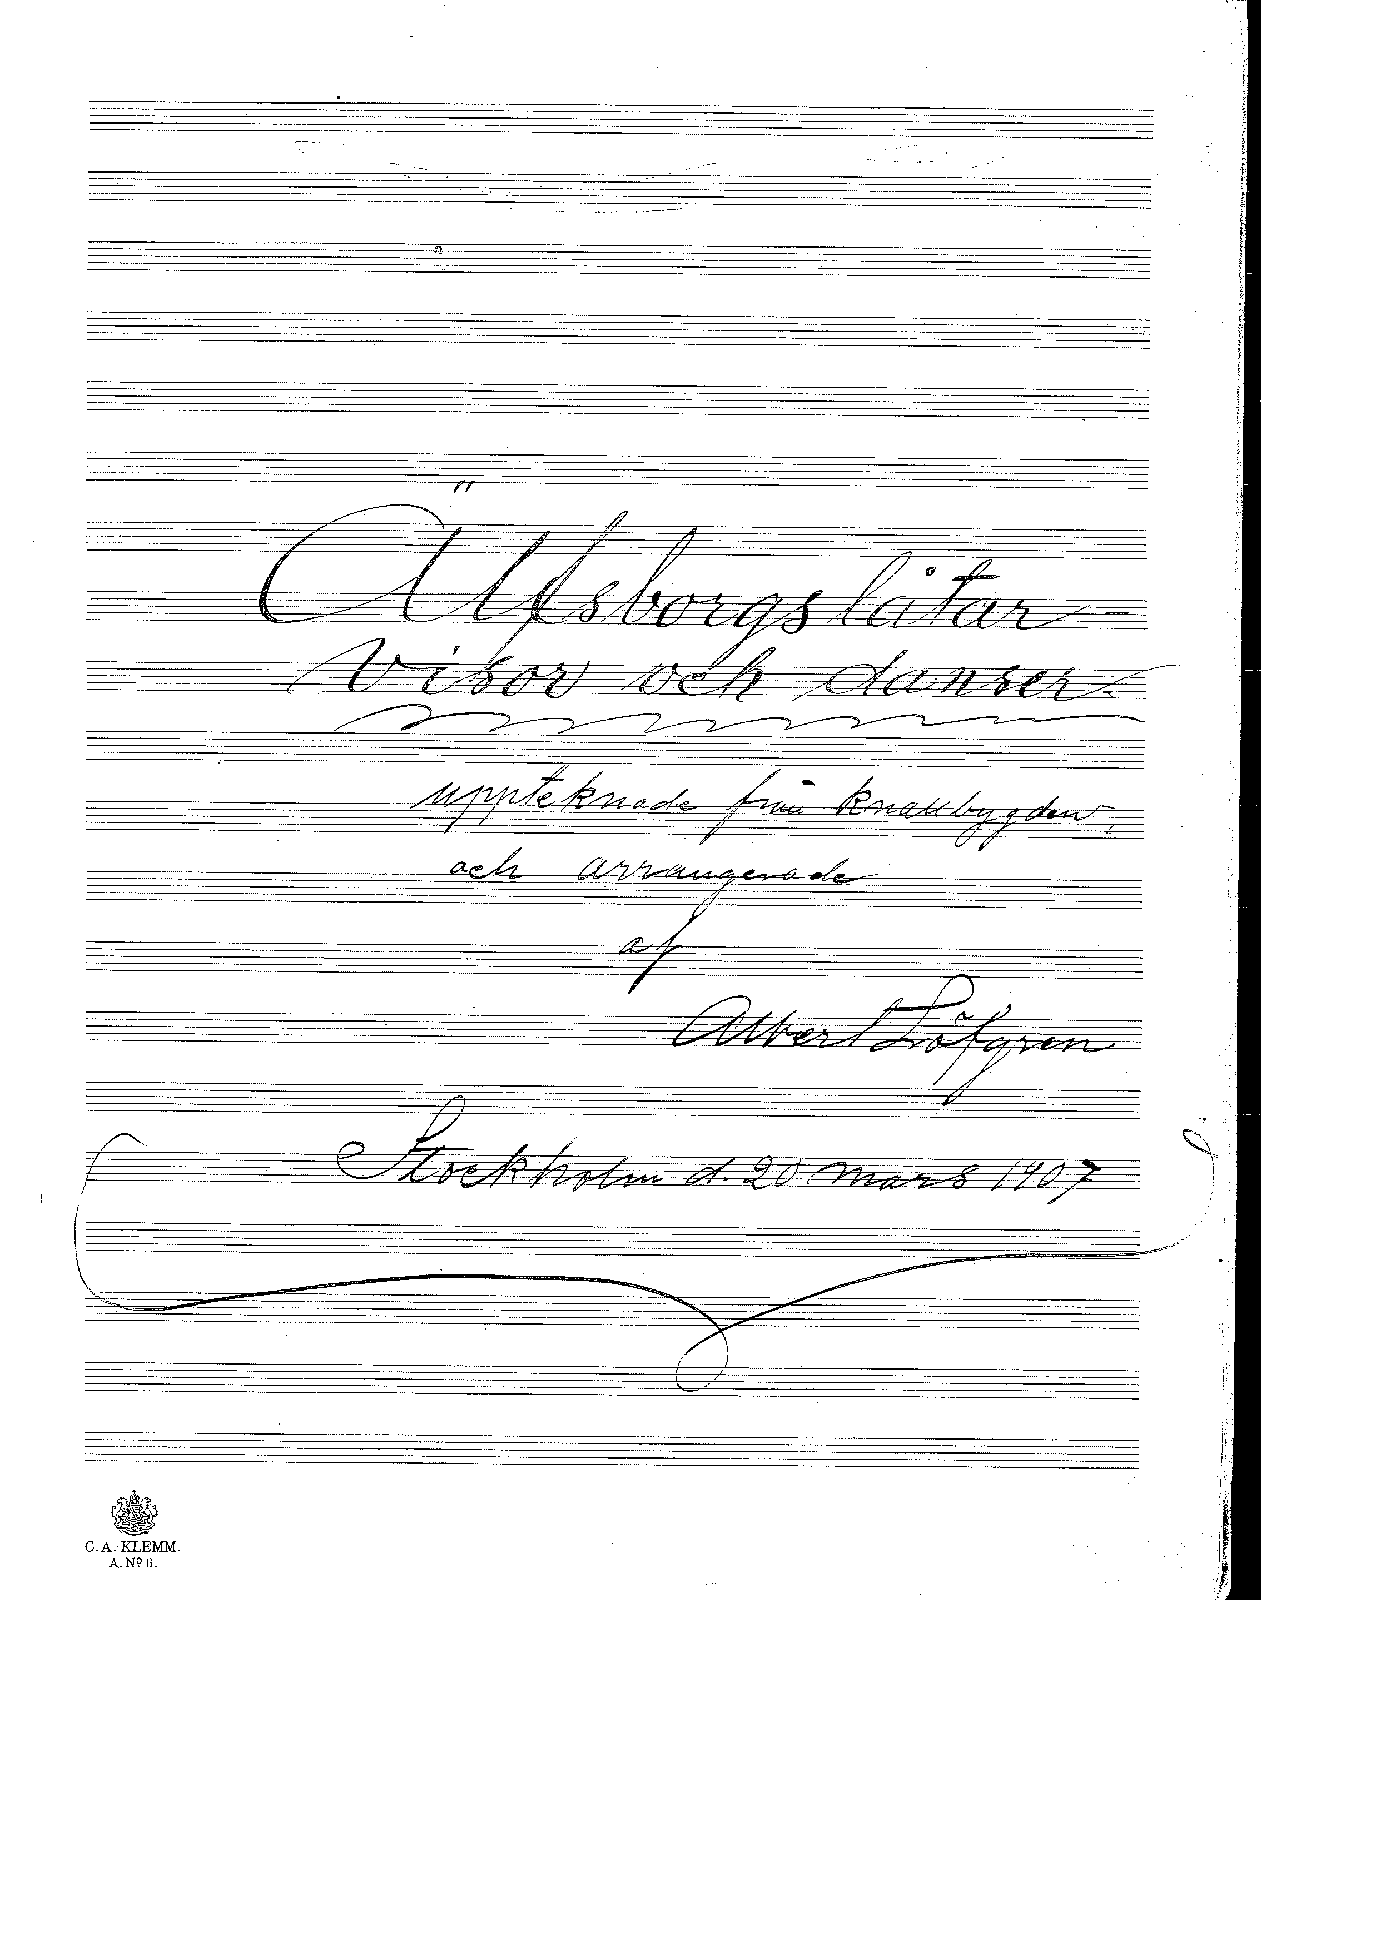 Älfsborgslåtar –
Visor och danser.
uppteknade från Knallbygden,
och arrangerade
af
Albert Löfgren
Stockholm d. 20 mars 1907
C. A. KLEMM.
A. Nº 6.